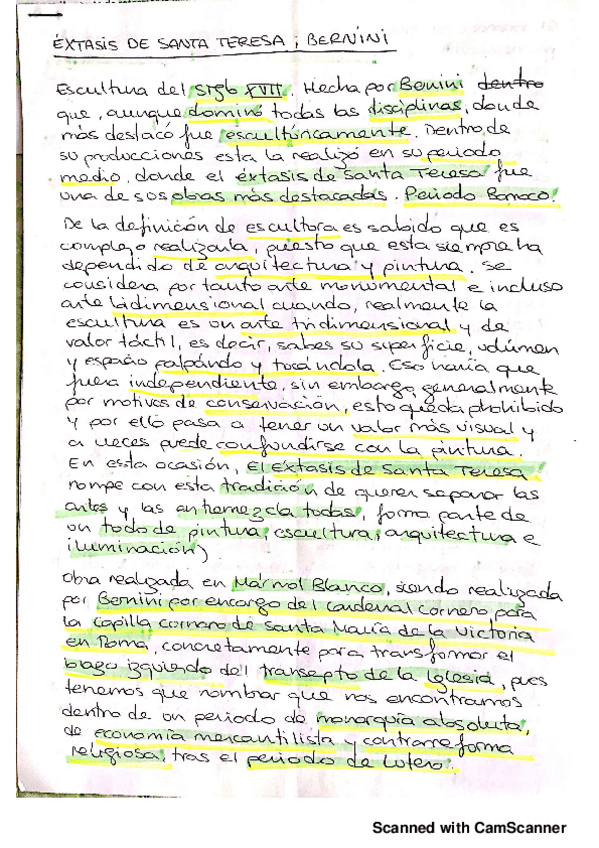 ÉXTASIS DE SANTA TERESA ; BERNINI
Escultura del Siglo XVII. Hecha por Bernini dentro
que, aunque dominó todas las disciplinas, donde
más destacó fue escultúricamente. Dentro de
su producciones esta la realizó en su periodo
medio, donde el éxtasis de santa Teresa fue
una de sus obras más destacadas. Periodo Barroco.
De la definición de escultora es sabido que es
complejo realizarla, puesto que esta siempre ha
dependido de arquitectura y pintura. Se
considera por tanto arte monumental e incluso
arte bidimensional cuando, realmente la
escultura es un arte tridimensional y de
valor táctil, es decir, sabes su superficie, volúmen
y espacio palpándo y tocándola. Eso haría que
fuera independiente, sin embargo, generalmente
por motivos de conservación, esto queda prohibido
y por ello pasa a tener un valor más visual y
a veces puede confundirse con la pintura.
En esta ocasión, el Éxtasis de Santa Teresa
rompe con esta tradición de querer separar las
artes y las entremezcla todas, forma parte de
un todo de pintura, escultura, arquitectura e
iluminación)
Obra realizada en Mármol Blanco, siendo realizada
por Bernini por encargo del Cardenal cornero para
la Capilla cornaro de Santa María de la Victoria
en Roma, concretamente para transformar el
brazo izquierdo del transepto de la Iglesia, pues
tenemos que nombrar que nos encontramos
dentro de un periodo de monarquía absoluta,
de economía mercantilista y contrarreforma
religiosa, tras el periodo de Lutero.
Scanned with CamScanner